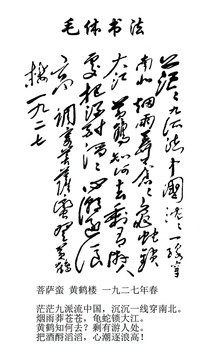 毛体书法
茫茫九派流中国沉沉一线穿
南北烟雨莽苍苍龟蛇锁
大江 黄鹤知何去剩有游人
处把酒酹滔滔心潮逐浪
高 调寄菩萨蛮 黄鹤
楼 一九二七
菩萨蛮 黄鹤楼 一九二七年春
茫茫九派流中国,沉沉一线穿南北。
烟雨莽苍苍,龟蛇锁大江。
黄鹤知何去?剩有游人处。
把酒酹滔滔,心潮逐浪高!